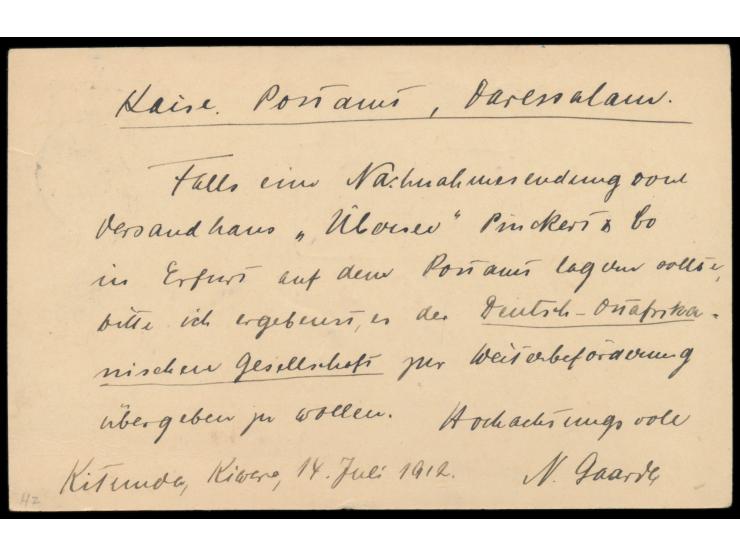 Kaise. Postamt, Daressalam.
Falls eine Nachnahmesendung vom
Versandhaus „Übersee" Pinckert & Co
in Erfurt auf dem Postamt lagern sollte,
bitte ich ergebenst, es der Deutsch-Ostafrika-
nischen Gesellschaft zur Weiterbeförderung
übergeben zu wollen. Hochachtungsvoll
Kitunda, Kiwere, 14. Juli 1912. N. Gaarde
HZ